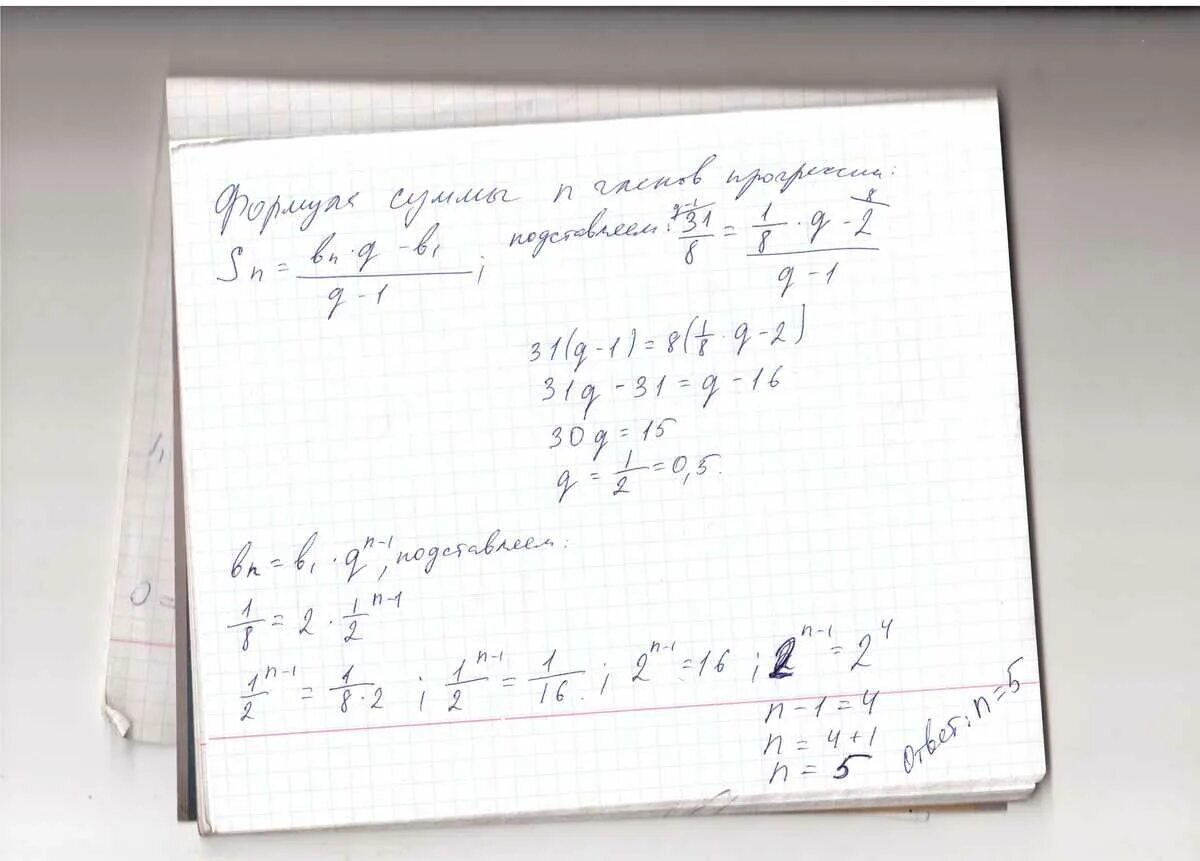 Формула суммы n членов прогрессии:
Sn = (вn · q − в1) / (q − 1) ; подставляем: 31/8 = (1/8 · q − 2) / (q − 1)
31(q−1) = 8(1/8 · q − 2)
31q − 31 = q − 16
30q = 15
q = 1/2 = 0,5.
вn = в1 · q^(n−1), подставляем:
1/8 = 2 · 1/2^(n−1)
1/2^(n−1) = 1/(8·2) ; 1/2^(n−1) = 1/16 ; 2^(n−1) = 16 ; 2^(n−1) = 2^4
n − 1 = 4
n = 4 + 1
n = 5
Ответ: n = 5
0 =